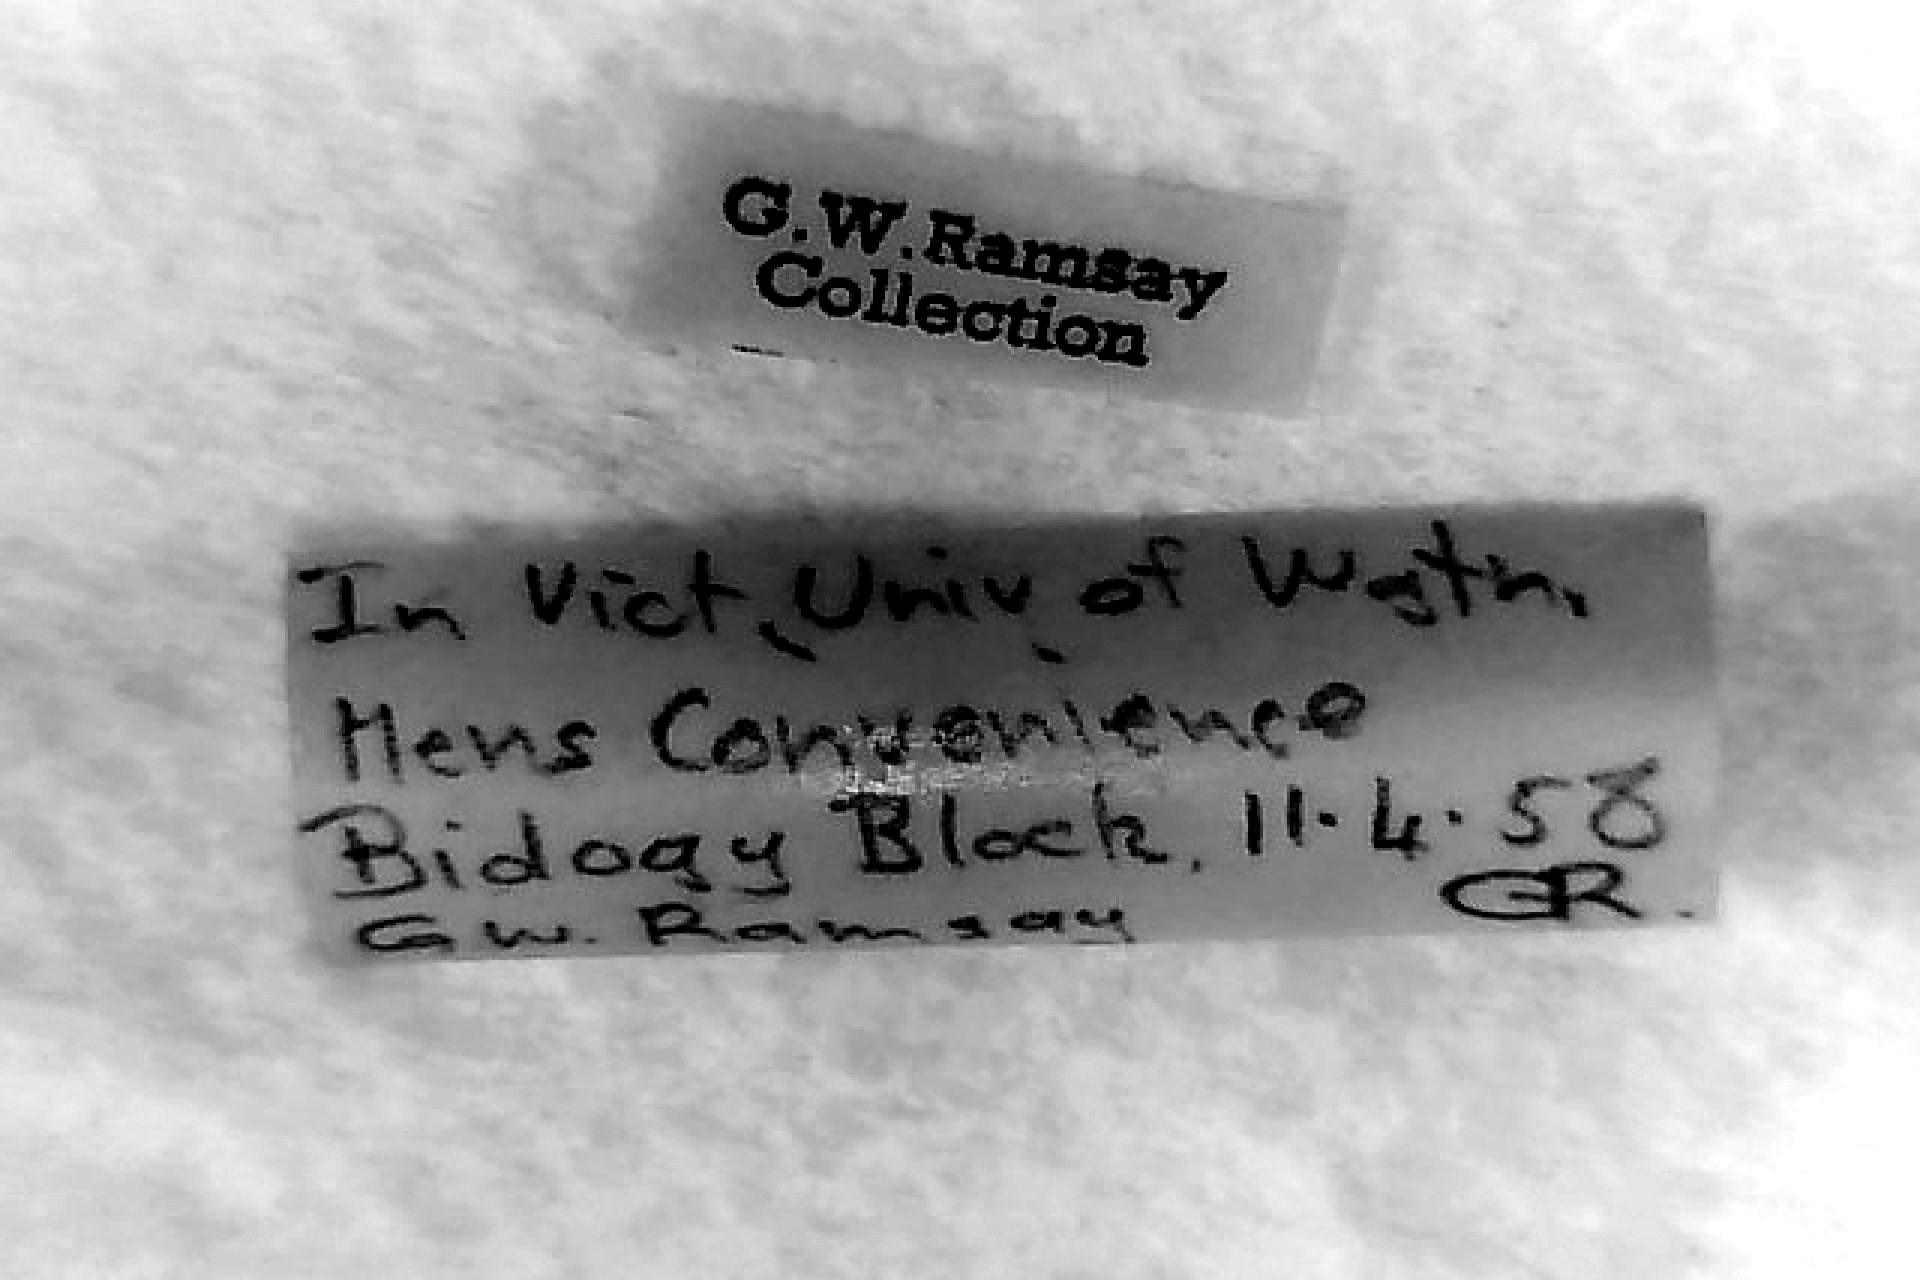 G.W.Ramsay
Collection
In Vict. Univ. of Wgtn.
Mens Convenience
Biology Block. 11.4.58
GR.
G.W. Ramsay